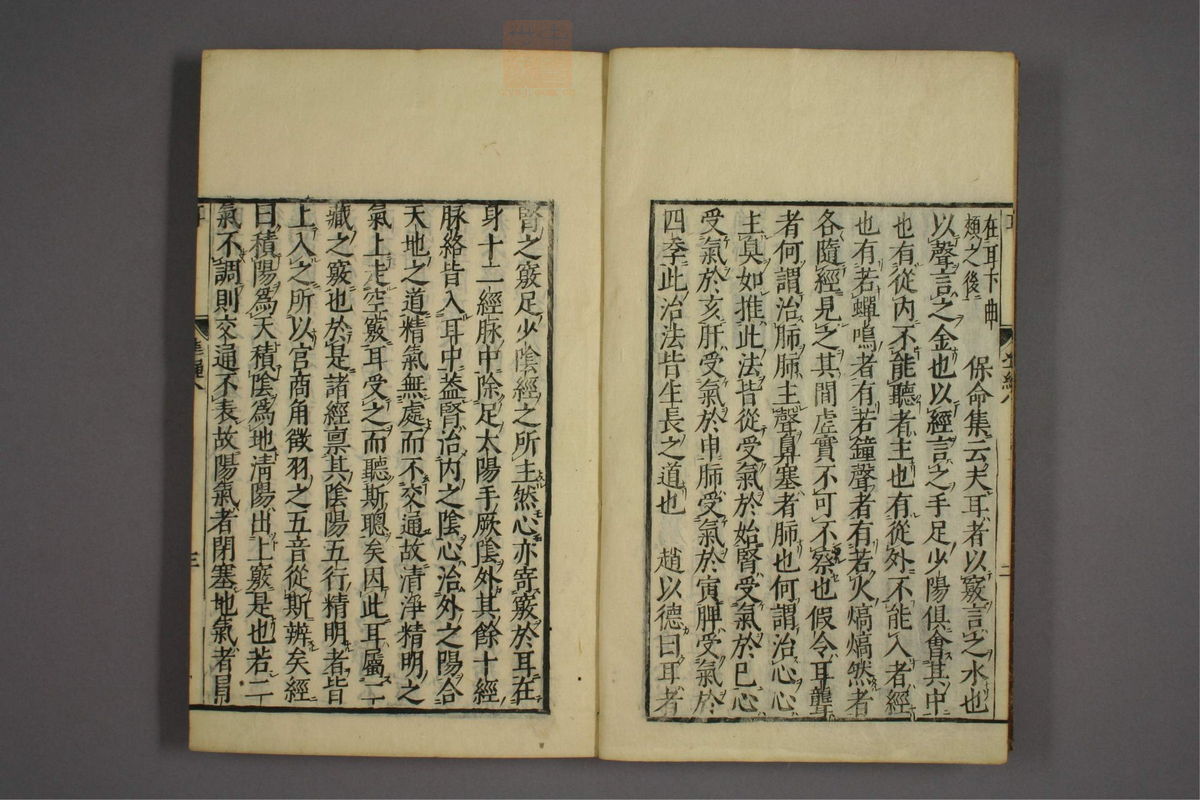 在耳下曲
頰之後
保命集云夫耳者以竅言之水也
以聲言之金也以經言之手足少陽俱會其中
也有從內不能聽者主也有從外不能入者經
也有若蟬鳴者有若鐘聲者有若火熇熇然者
各隨經見之其間虛實不可不察也假令耳聾
者何謂治肺肺主聲鼻塞者肺也何謂治心心
主臭如推此法皆從受氣於始腎受氣於巳心
受氣於亥肝受氣於申肺受氣於寅脾受氣於
四季此治法皆生長之道也 趙以德曰耳者
二
腎之竅足少陰經之所主然心亦寄竅於耳在
身十二經脉中除足太陽手厥陰外其餘十經
脉絡皆入耳中蓋腎治內之陰心治外之陽合
天地之道精氣無處而不交通故清淨精明之
氣上走空竅耳受之而聽斯聰矣因此耳屬二
臟之竅也於是諸經禀其陰陽五行精明者皆
上入之所以宮商角徵羽之五音從斯辨矣經
曰積陽為天積陰為地清陽出上竅是也若二
氣不調則交通不表故陽氣者閉塞地氣者冒
三